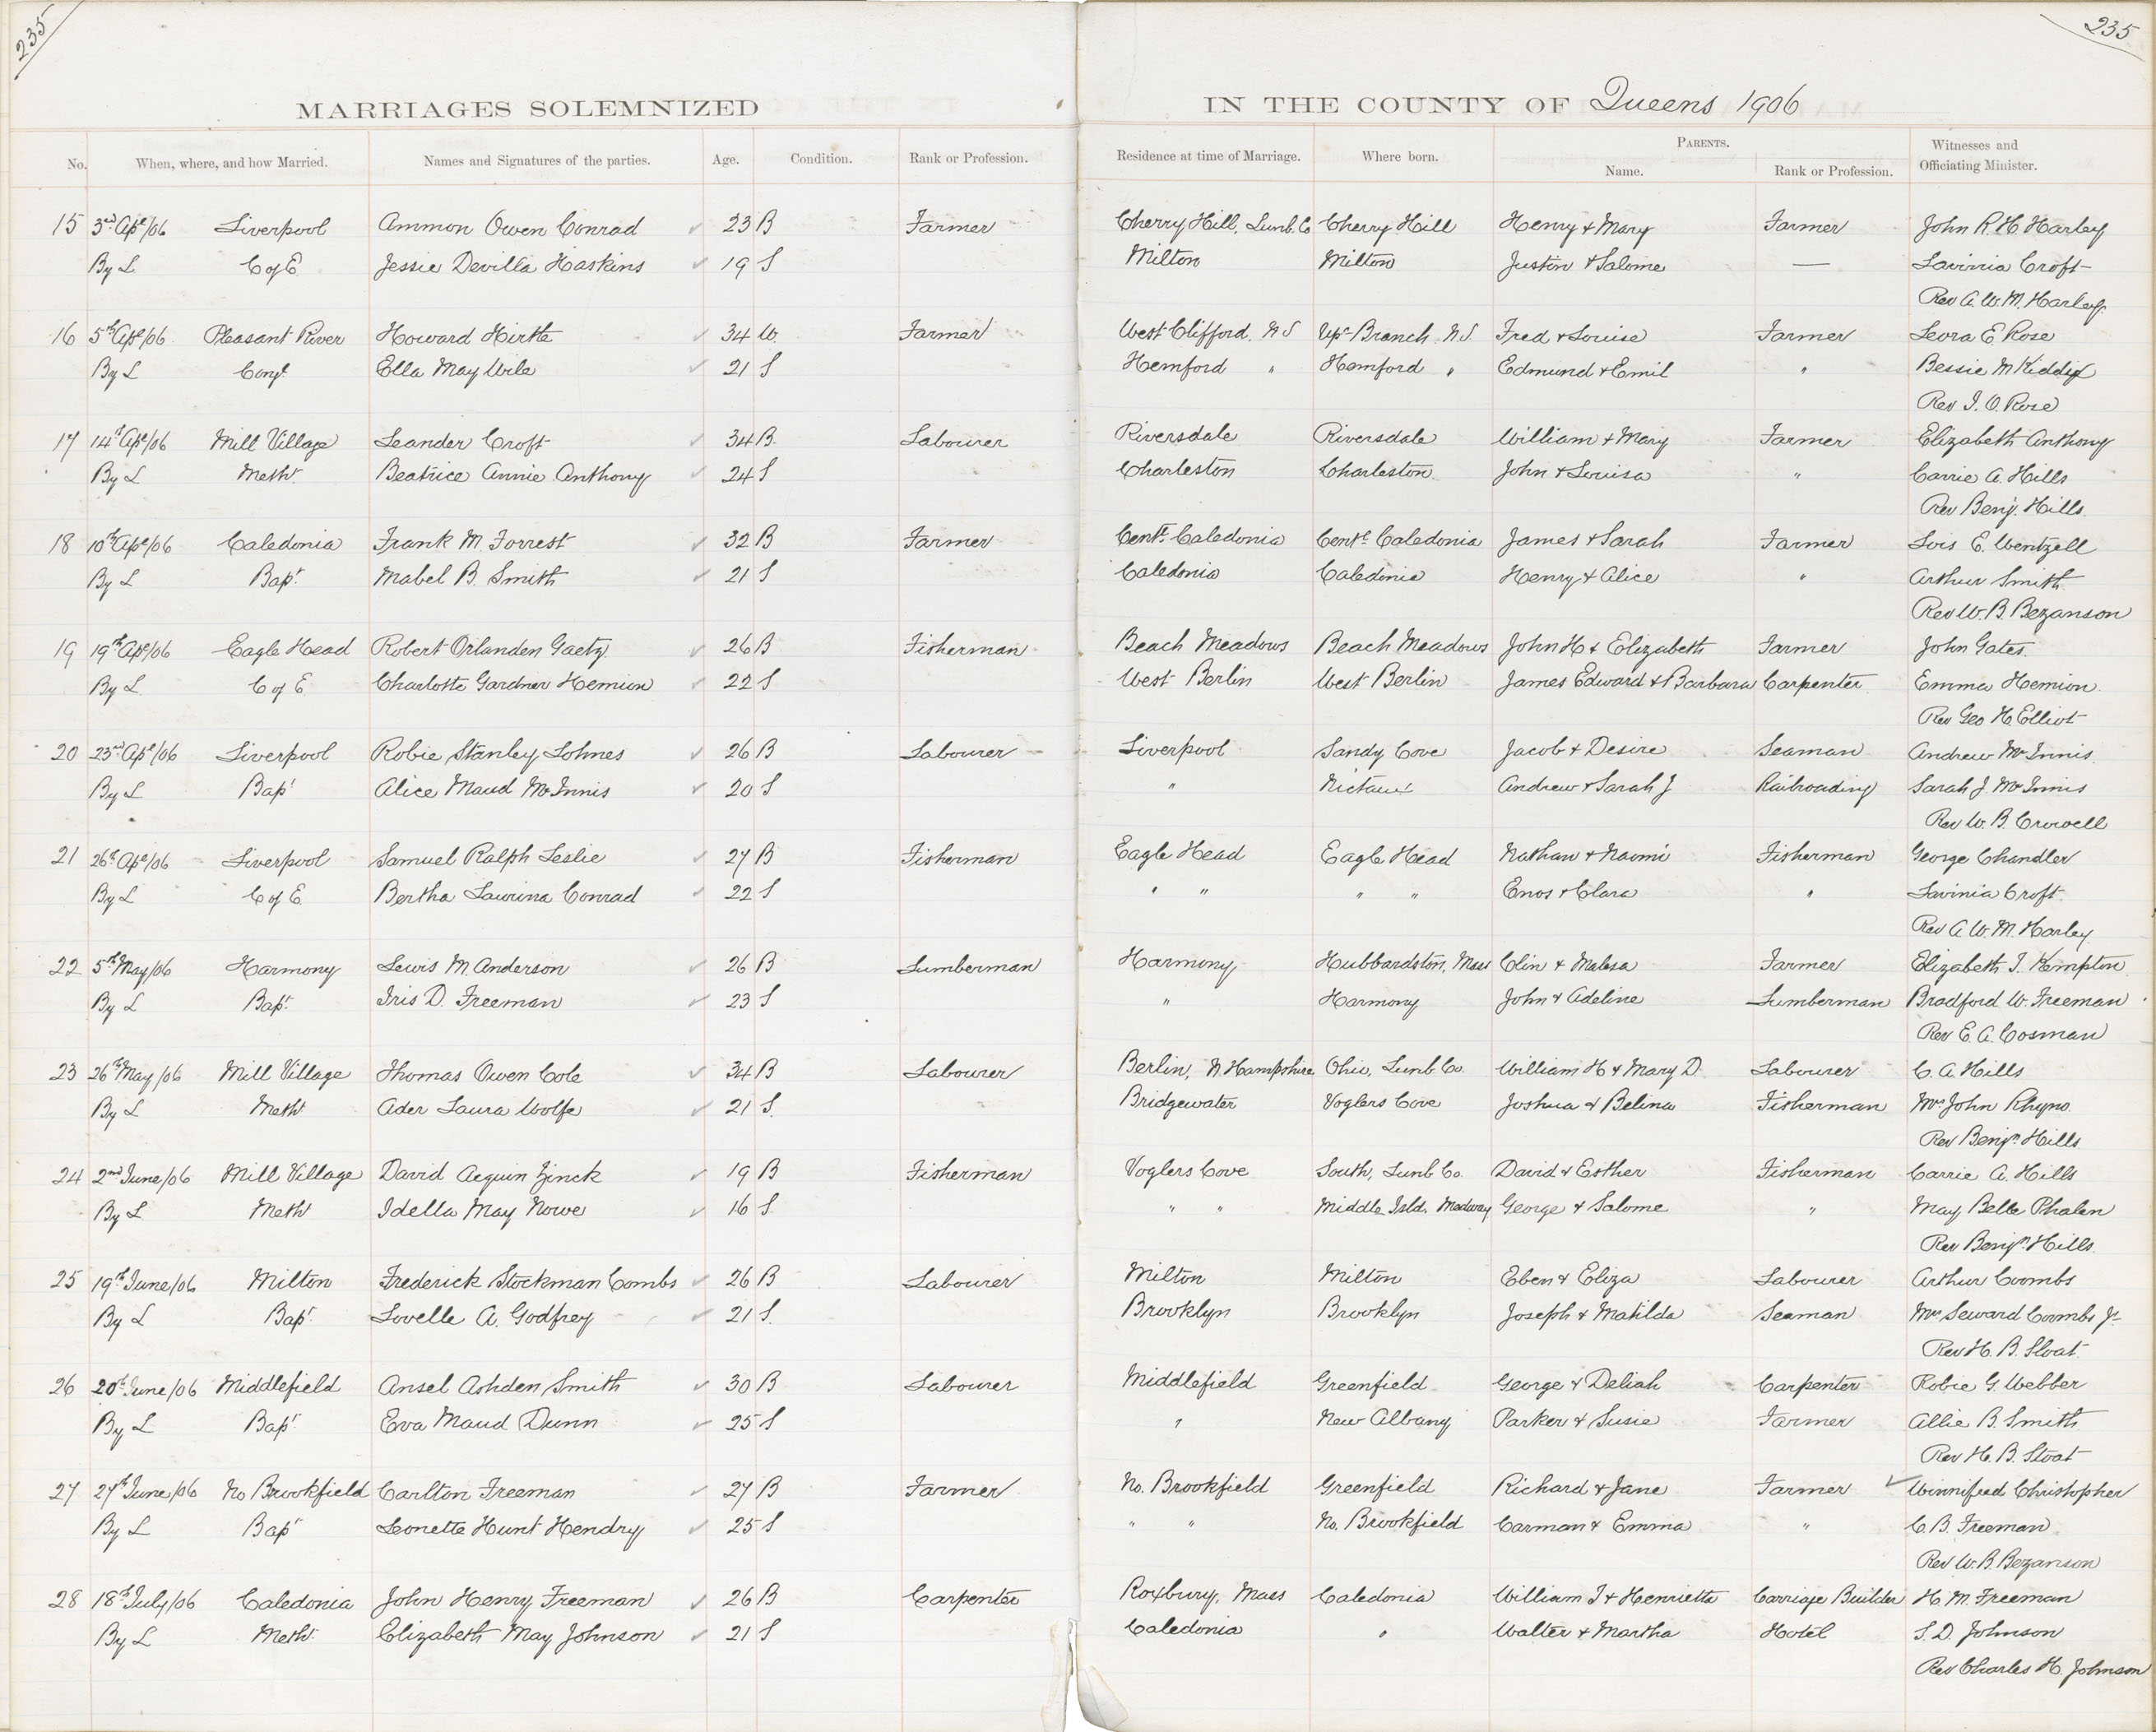 235
235
MARRIAGES SOLEMNIZED IN THE COUNTY OF Queens 1906
No. When, where, and how Married. Names and Signatures of the parties. Age. Condition. Rank or Profession. Residence at time of Marriage. Where born. PARENTS. Name. Rank or Profession. Witnesses and Officiating Minister.
15 3rd Apl/06 Liverpool Ammon Owen Conrad 23 B Farmer Cherry Hill, Lunb. Co Cherry Hill Henry & Mary Farmer John R. H. Harley
By L C of E Jessie Devilla Haskins 19 S Milton Milton Juston & Salome — Lavinia Croft
Rev A. W. M. Harley
16 5th Apl/06 Pleasant River Howard Hirtle 34 W. Farmer West Clifford, N S Upr Branch N.S. Fred & Louise Farmer Leora E. Rose
By L Congl Ella May Wile 21 S Hemford " Hemford " Edmund & Emil " Bessie M
Rev I. O. Rose
17 14th Apl/06 Mill Village Leander Croft 34 B. Labourer Riversdale Riversdale William & Mary Farmer Elizabeth Anthony
By L Meth. Beatrice Annie Anthony 24 S Charleston Charleston John & Louisa " Carrie A. Hills
Rev Benj. Hills
18 10th Apl/06 Caledonia Frank M. Forrest 32 B Farmer Centl. Caledonia Centl Caledonia James & Sarah Farmer Lois E. Wentzell
By L Bapt. Mabel B. Smith 21 S Caledonia Caledonia Henry & Alice " Arthur Smith
Rev W. B. Bezanson
19 19th Apl/06 Eagle Head Robert Orlanden Gaetz 26 B Fisherman Beach Meadows Beach Meadows John H & Elizabeth Farmer John Gates
By L C of E Charlotte Gardner Hemion 22 S West Berlin West Berlin James Edward & Barbara Carpenter Emma Hemion
Rev Geo H. Elliot
20 23rd Apl/06 Liverpool Robie Stanley Lohnes 26 B Labourer Liverpool Sandy Cove Jacob & Desire Seaman Andrew McInnis
By L Bapt Alice Maud McInnis 20 S " Nictaux Andrew & Sarah J Railroading Sarah J. McInnis
Rev W. B. Crowell
21 26th Apl/06 Liverpool Samuel Ralph Leslie 27 B Fisherman Eagle Head Eagle Head Nathan & Naomi Fisherman George Chandler
By L C of E Bertha Laurina Conrad 22 S " " " " Enos & Clara " Lavinia Croft
Rev A. W. M. Harley
22 5th May/06 Harmony Lewis M. Anderson 26 B Lumberman Harmony Hubbardston, Mass Olin & Malesa Farmer Elizabeth I. Kempton
By L Bapt. Iris D. Freeman 23 S " Harmony John & Adeline Lumberman Bradford W. Freeman
Rev E. A. Cosman
23 26th May/06 Mill Village Thomas Owen Cole 34 B Labourer Berlin, N. Hampshire Ohio, Lunb. Co. William H & Mary D. Labourer C. A. Hills
By L Meth Ader Laura Woolfe 21 S. Bridgewater Voglers Cove Joshua & Belina Fisherman Mrs John Rhyno
Rev Benjn. Hills
24 2nd June/06 Mill Village David Aequin Zinck 19 B Fisherman Voglers Cove South, Lunb. Co. David & Esther Fisherman Carrie A. Hills
By L Meth Idella May Nowe 16 S. " " Middle Isld. Medway George & Salome " May Belle Phalen
Rev Benjn. Hills
25 19th June/06 Milton Frederick Stockman Combs 26 B Labourer Milton Milton Eben & Eliza Labourer Arthur Coombs
By L Bapt. Lovelle A. Godfrey 21 S. Brooklyn Brooklyn Joseph & Matilda Seaman Mrs Seward Coombs Jr
Rev H. B. Sloat
26 20th June/06 Middlefield Ansel Ashden Smith 30 B Labourer Middlefield Greenfield George & Deliah Carpenter Robie G. Webber
By L Bapt Eva Maud Dunn 25 S " New Albany Parker & Susie Farmer Allie B. Smith
Rev H. B. Sloat
27 27th June/06 No Brookfield Carlton Freeman 27 B Farmer No. Brookfield Greenfield Richard & Jane Farmer Winnifred Christopher
By L Bapt Leonette Hunt Hendry 25 S " " No. Brookfield Carman & Emma " C. B. Freeman
Rev W. B. Bezanson
28 18th July/06 Caledonia John Henry Freeman 26 B Carpenter Roxbury, Mass Caledonia William I & Henrietta Carriage Builder H. M. Freeman
By L Meth. Elizabeth May Johnson 21 S Caledonia " Walter & Martha Hotel S. D. Johnson
Rev Charles H. Johnson